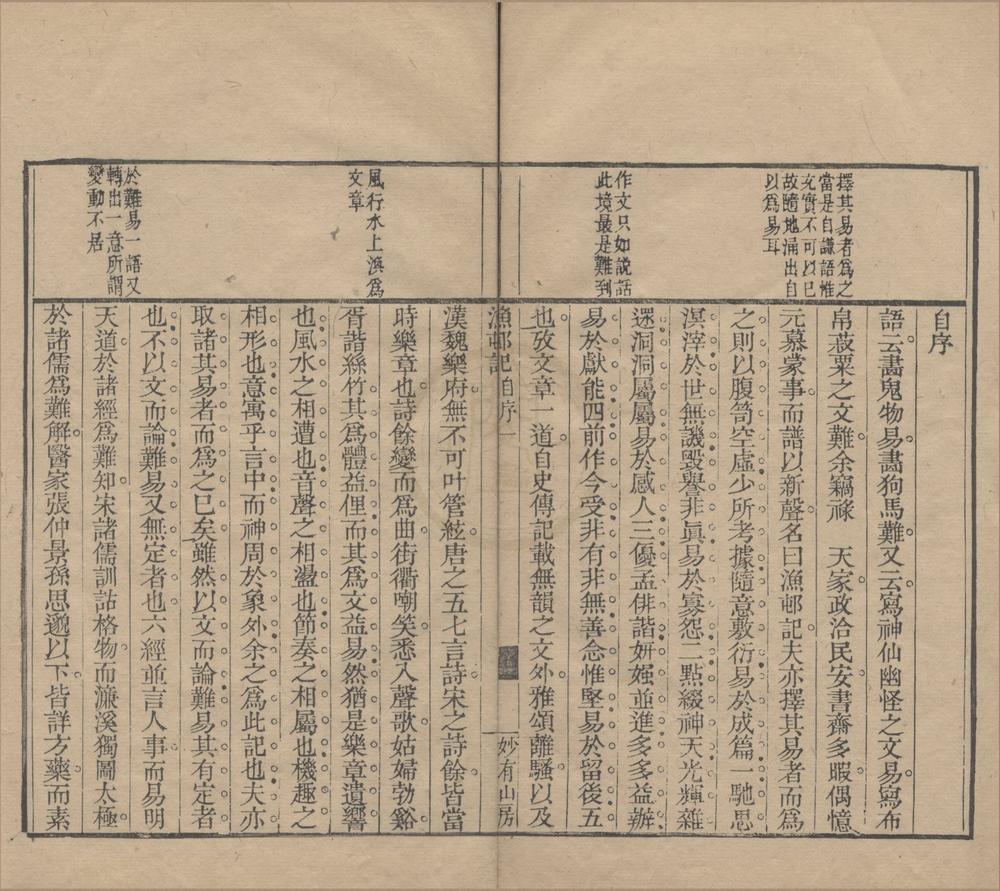 擇其易者爲之
當是自謙語惟
充實不可以已
故隨地涌出自
以爲易耳
作文只如說話
此境最是難到
自序
語云畵鬼物易畵狗馬難又云寫神仙幽怪之文易寫布
帛菽粟之文難余竊祿　天家政洽民安書齋多暇偶憶
元慕蒙事而譜以新聲名曰漁邨記夫亦擇其易者而爲
之則以腹笥空虛少所考據隨意敷衍易於成篇一馳思
溟涬於世無譏毀譽非眞易於寡怨二點綴神天光輝雜
遝洞洞屬屬易於感人三優孟俳諧妍媸並進多多益辦
易於獻能四前作今受非有非無善念惟堅易於留後五
也攷文章一道自史傳記載無韻之文外雅頌離騷以及
漁邨記 自序 一 妙有山房
風行水上渙爲
文章
於難易一語又
轉出一意所謂
變動不居
漢魏樂府無不可叶管絃唐之五七言詩宋之詩餘皆當
時樂章也詩餘變而爲曲街衢嘲笑悉入聲歌姑婦勃谿
胥諧絲竹其爲體益俚而其爲文益易然猶是樂章遺響
也風水之相遭也音聲之相盪也節奏之相屬也機趣之
相形也意寓乎言中而神周於象外余之爲此記也夫亦
取諸其易者而爲之已矣雖然以文而論難易其有定者
也不以文而論難易又無定者也六經並言人事而易明
天道於諸經爲難知宋諸儒訓詁格物而濂溪獨圖太極
於諸儒爲難解醫家張仲景孫思邈以下皆詳方藥而素